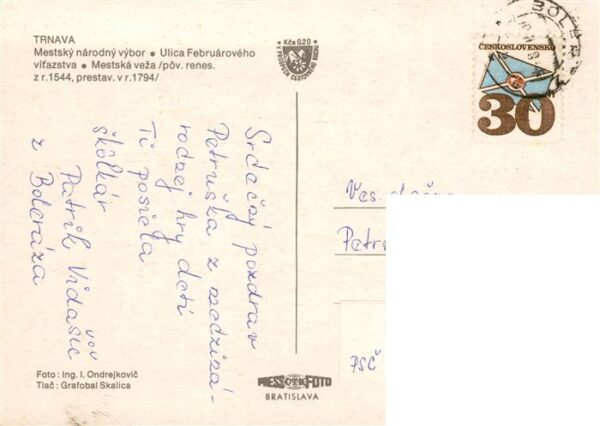 TRNAVA
Mestský národný výbor • Ulica Februárového
víťazstva • Mestská veža /pôv. renes.
z r.1544, prestav. v r.1794/
Kčs 0,20
V PROSPECH CESTOVNÉHO RUCHU
BOLE
ČESKOSLOVENSKO
30
Srdečný pozdrav
Petruška z medzená-
rodzej hry detí
Ti posiela
škôlkár
Patrik Vidašic
z Boleráza
Ves.
Petru
PSČ
Foto : Ing. I. Ondrejkovič
Tlač : Grafobal Skalica
PRESSFOTO
BRATISLAVA